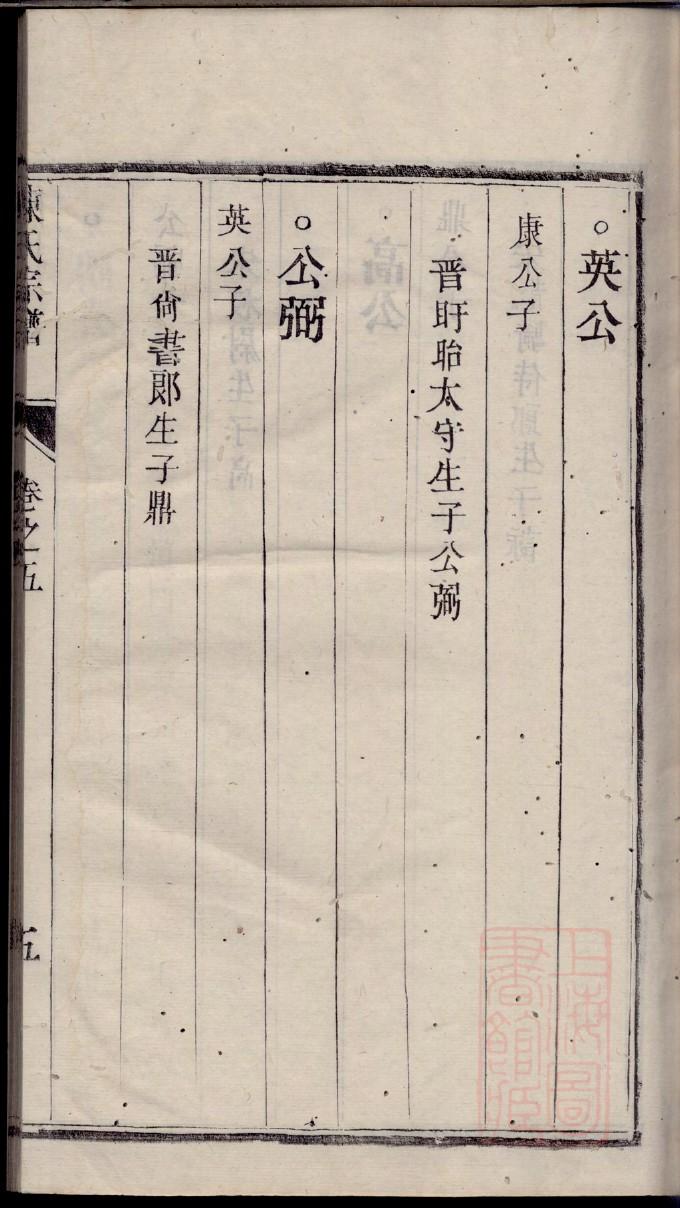 ○英公
康公子
晉盱眙太守生子公弼
○公弼
英公子
晉尙書郎生子鼎
陳氏宗譜
卷之五
五
上海圖書館藏